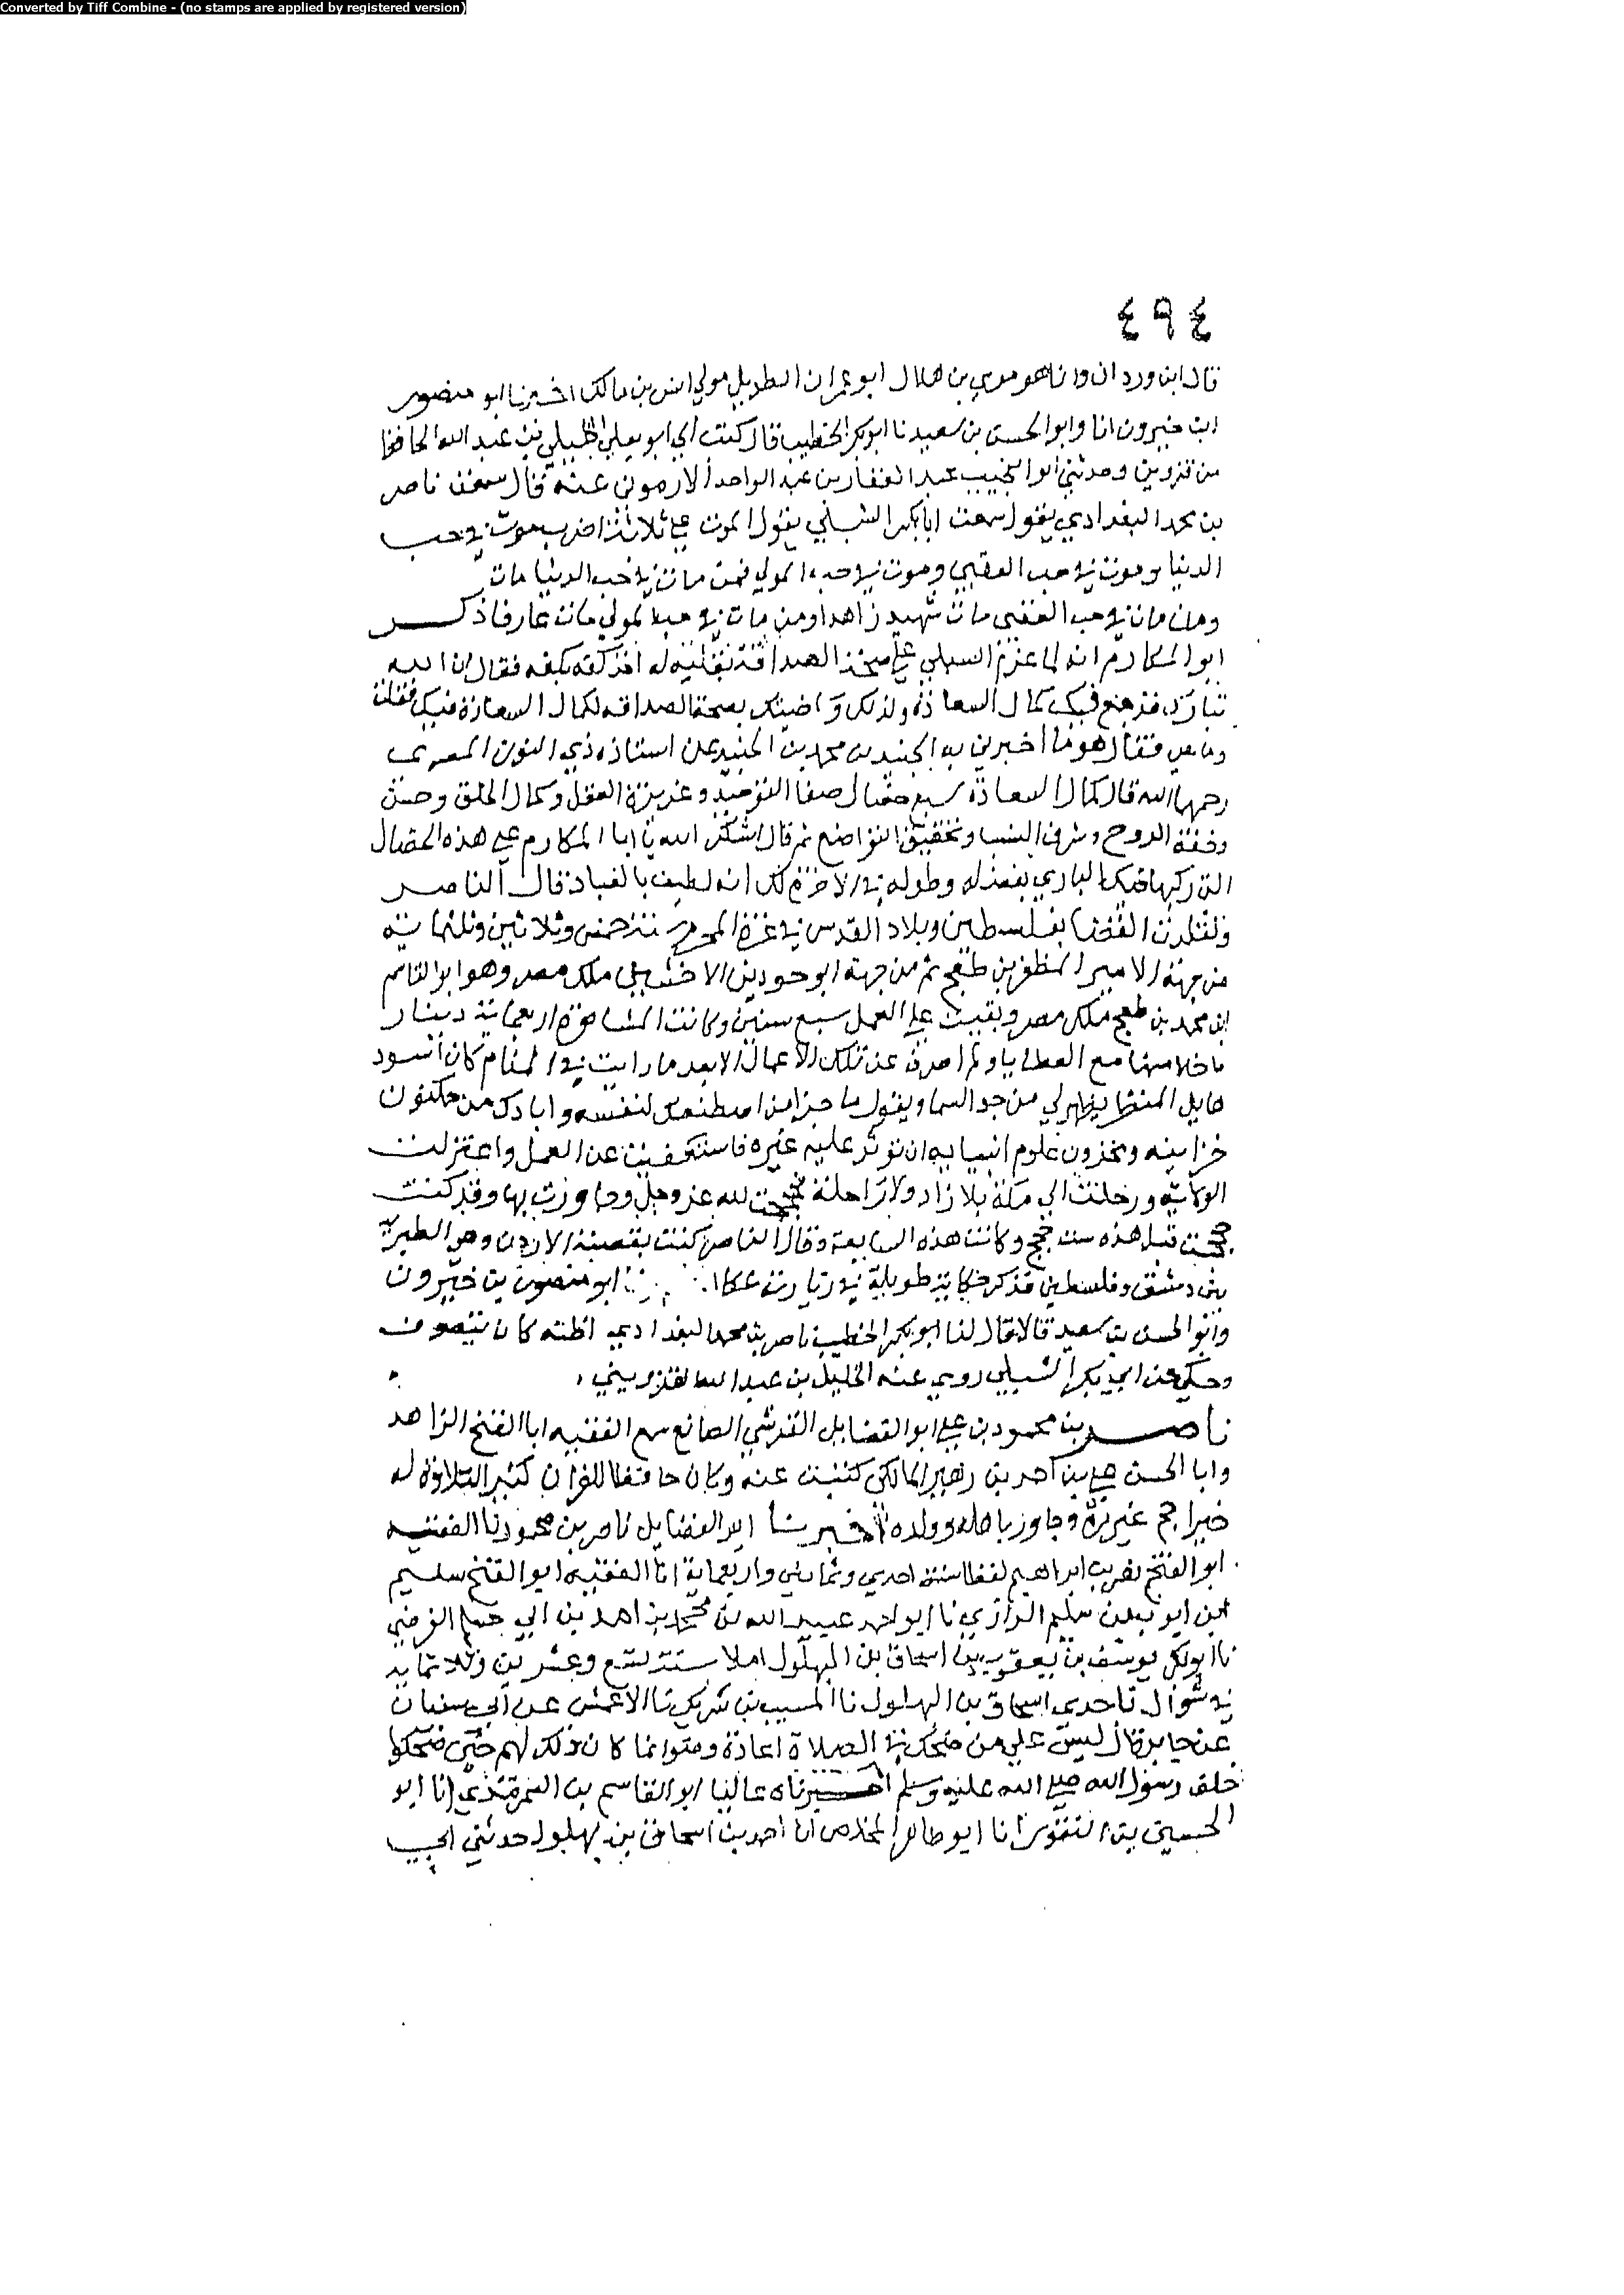 Converted by Tiff Combine - (no stamps are applied by registered version)
٤٩٤
قال ابن وردان وانا هو موسي بن هلال ابو عمران الطويل مولي انس بن مالك اخبرنا ابو منصور
ابن خيرون انا وابو الحسن بن سعيد نا ابو بكر الخطيب قال كتب الي ابو يعلي الخليلي بن عبد الله الحافظ
من قزوين وحدثني ابو النجيب عبد الغفار بن عبد الواحد الارموي عنه قال سمعت ناصر
بن محمد البغدادي يقول سمعت ابا بكر الشبلي يقول الموت علي ثلاثة اضرب موت في حب
الدنيا وموت في حب العقبي وموت في حب المولي فمن مات في حب الدنيا مات
ومن مات في حب العقبي مات شهيد زاهدا ومن مات في حب المولي مات عارفا ذكر
ابو المكارم انه لما عزم الشبلي علي الصداقة اخذ كفه بكفه فقال ان الله
تبارك قد جمع فيك كمال السعادة ولذلك بصحة الصداقه لكمال السعادة فيك فقلت
وما هي فقال هو ما اخبرني به الجنيد بن محمد بن الجنيد عن استاذه ذي النون المصري
رحمها الله قال كمال السعادة سبع خصال صفا التوحيد وغريزة العقل وكمال الخلق وحسن
وخفة الروح وشرف النسب وتحقيق التواضع ثم قال اشكر الله يا ابا المكارم علي هذه الخصال
التي ركبها فيك الباري بفضله وطوله انه لطيف بالعباد قال الناصر
وتقلدت القضا بفلسطين وبلاد القدس في غرة المحرم سنة خمس وثلاثين وثلثماية
من جهة الامير المظفر بن طغج ثم من جهة ابو حودين الاخشيدي ملك مصر وهو ابو القاسم
بن محمد بن طغج ملك مصر وبقيت علي العمل سبع سنين وكانت المشاهرة اربعماية دينار
ما خلا منها مع العطايا ولم اصرف عن تلك الاعمال الا بعد ما رايت في المنام كان اسود
هايل المنظر يظهر لي من جو السما ويقول ما جزا من اصطنعك لنفسه واباك من مكنون
خزاينه ومخزون علوم انبيايه ان توثر عليه غيره فاستعفيت عن العمل واعتزلت
الولاية ورحلت الي مكة بلا زاد ولا راحلة فحججت لله عز وجل وجاورت بها وقد كنت
حججت قبل هذه ست حجج وكانت هذه السابعة وقال الناصر كنت بقصبة الاردن وهو الطبرية
بين دمشق وفلسطين فذكر حكاية طويلة في زيارته عكا ابو منصور بن خيرون
وابو الحسن بن سعيد قالا قال لنا ابو بكر الخطيب ناصر بن محمد البغدادي اظنه كان يتصوف
وحكي عن ابي بكر الشبلي روي عنه الخليل بن عبد الله القزويني
ناصر بن محمود بن علي ابو الفضايل القرشي الصانع سمع الفقيه ابا الفتح الزاهد
وابا الحسن علي بن احمد بن زهير المالكي كتبت عنه وكان حافظا للقران كثير التلاوة له
خيرا حج غير مرة وجاور باهله وولده اخبرنا ابو الفضايل ناصر بن محمود نا الفقيه
ابو الفتح نصر بن ابراهيم لفظا سنة احدي وثمانين واربعماية انا الفقيه ابو الفتح سليم
ابن ايوب بن سليم الرازي نا ابو احمد عبيد الله بن محمد بن احمد بن ابي مسلم الفرضي
نا ابو بكر يوسف بن يعقوب بن اسحاق بن البهلول املا سنة تسع وعشرين وثلاثماية
في شوال نا جدي اسحاق بن البهلول نا المسيب بن شريك نا الاعمش عن ابي سفيان
عن جابر قال ليس علي من ضحك في الصلاة اعادة وضو انما كان ذلك لهم حين ضحكوا
خلف رسول الله صلي الله عليه وسلم اخبرناه عاليا ابو القاسم بن السمرقندي انا ابو
الحسين بن النقور انا ابو طاهر المخلص انا احمد بن اسحاق بن بهلول حدثني ابي